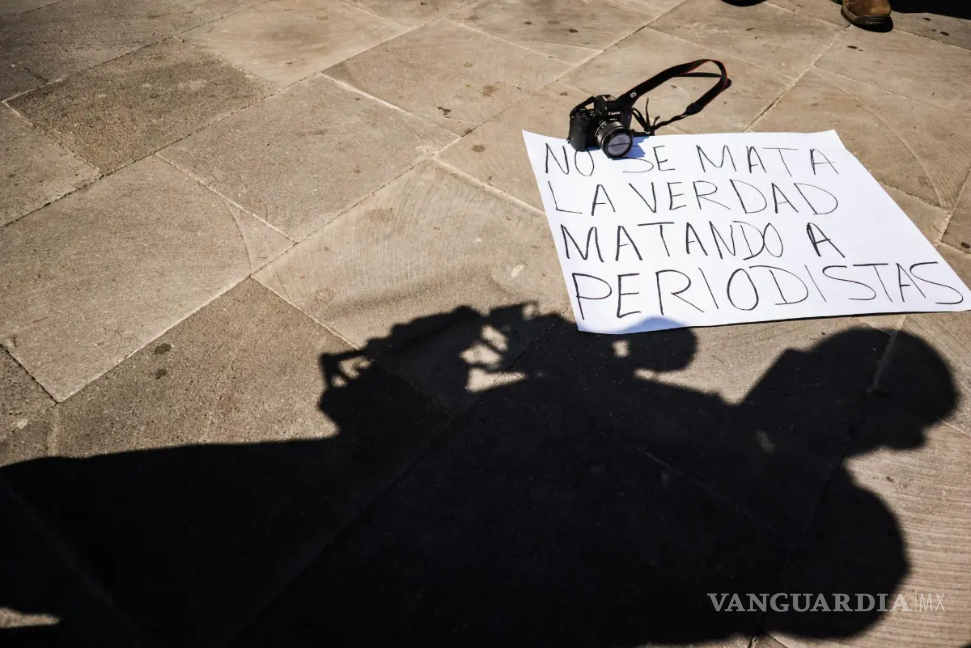 NO SE MATA
LA VERDAD
MATANDO A
PERIODISTAS
VANGUARDIA|MX